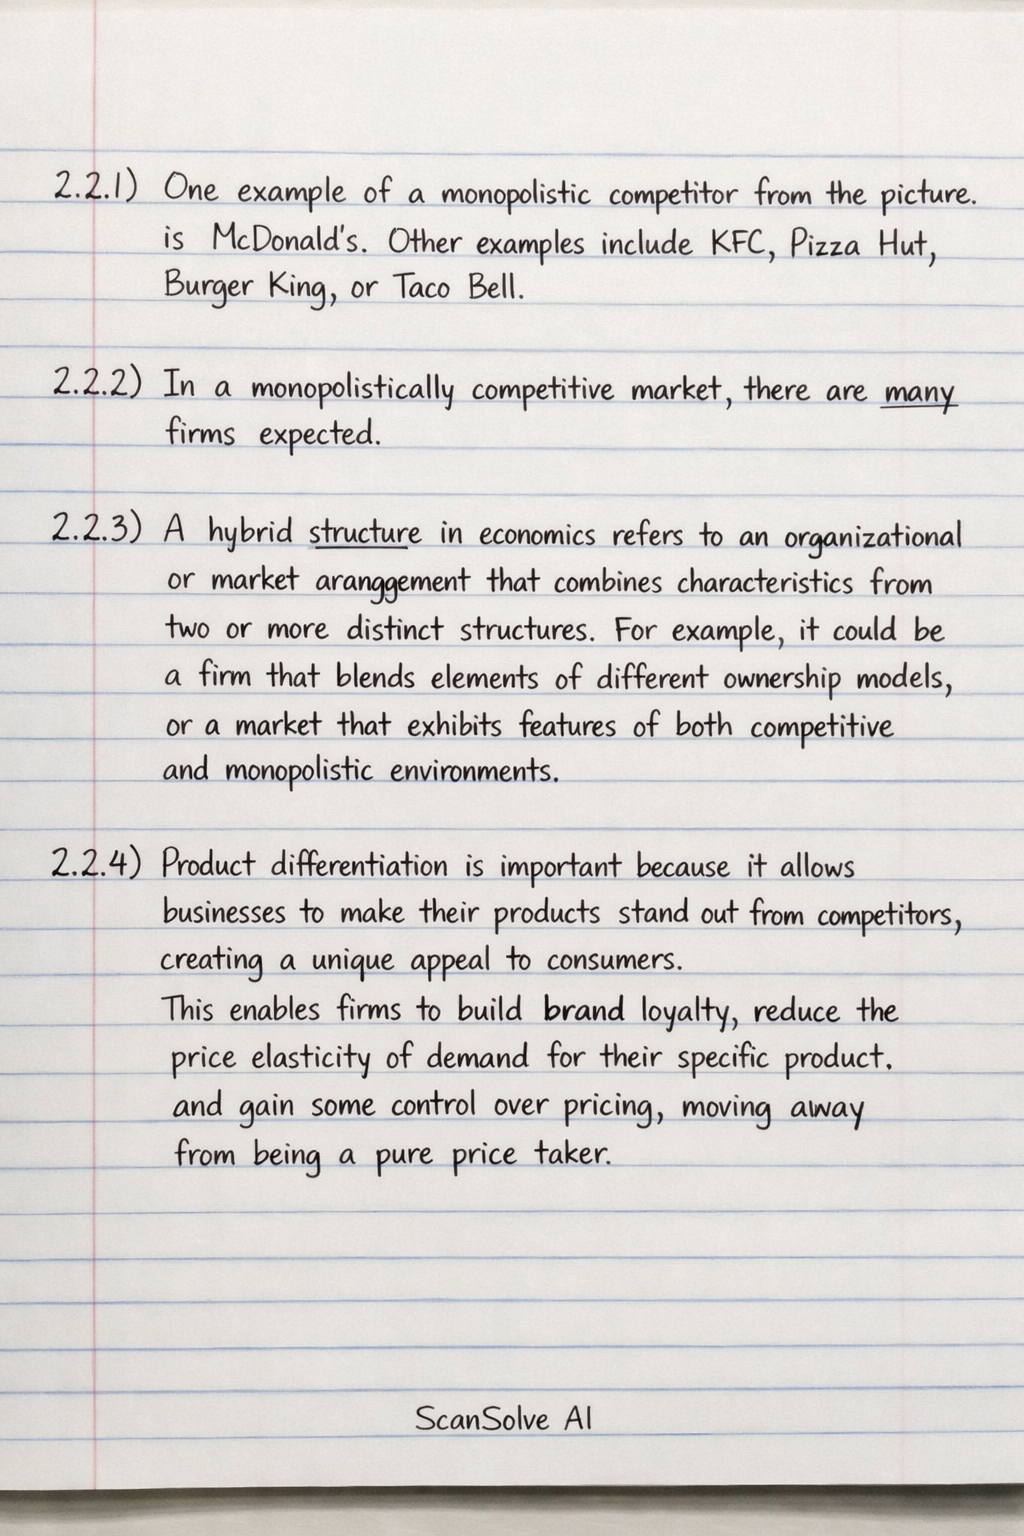 2.2.1) One example of a monopolistic competitor from the picture.
is McDonald's. Other examples include KFC, Pizza Hut,
Burger King, or Taco Bell.
2.2.2) In a monopolistically competitive market, there are many
firms expected.
2.2.3) A hybrid structure in economics refers to an organizational
or market aranggement that combines characteristics from
two or more distinct structures. For example, it could be
a firm that blends elements of different ownership models,
or a market that exhibits features of both competitive
and monopolistic environments.
2.2.4) Product differentiation is important because it allows
businesses to make their products stand out from competitors,
creating a unique appeal to consumers.
This enables firms to build brand loyalty, reduce the
price elasticity of demand for their specific product.
and gain some control over pricing, moving away
from being a pure price taker.
ScanSolve AI